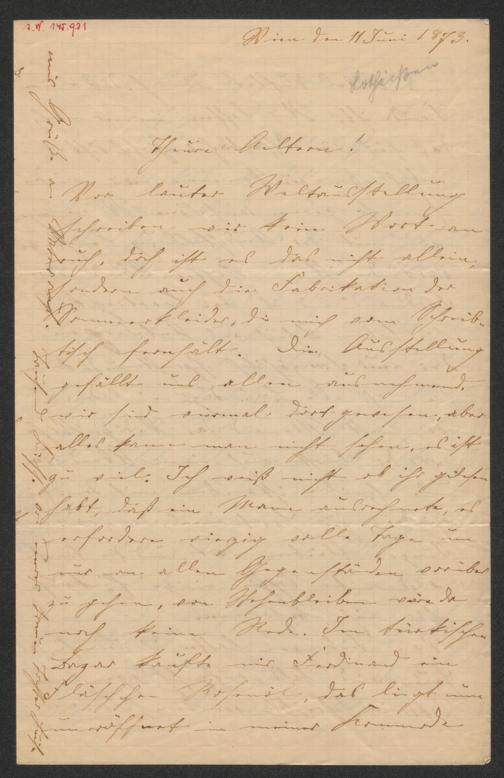 I. N. 145.921
Wien den 11 Juni 1873.
Theure Aeltern!
Vor lauter Weltausstellung
schreiben wir kein Wort an
euch, doch ist es das nicht allein,
sondern auch die Fabrikation der
Sommerkleider, die mich vom Schreib-
tisch fernhält. Die Ausstellung
gefällt uns allen ausnehmend,
wir sind viermal dort gewesen, aber
alles kann man nicht sehen, es ist
zu viel. Ich weiß nicht ob ihr gelesen
habt, daß ein Mann ausrechnete, es
erfordere vierzig volle Tage um
nur an allen Gegenständen vorüber
zu gehen, von Stehenbleiben wäre da
noch keine Rede. Im türkischen
Bazar kaufte mir Ferdinand ein
Fläschchen Rosenöl, das liegt nun
uneröffnet in meiner Kommode